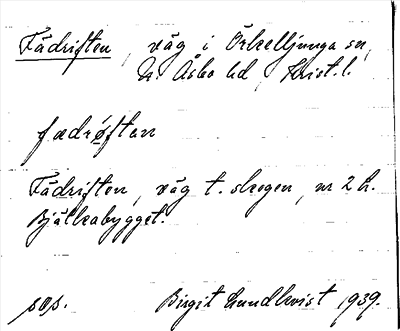 Fädriften, väg i Örkelljunga sn,
N. Åsbo hd, Krist. l.
fædrøftan
Fädriften, väg t. skogen, nr 2 h.
Bjälkabygget.
sep. Birgit Lundkvist 1939.